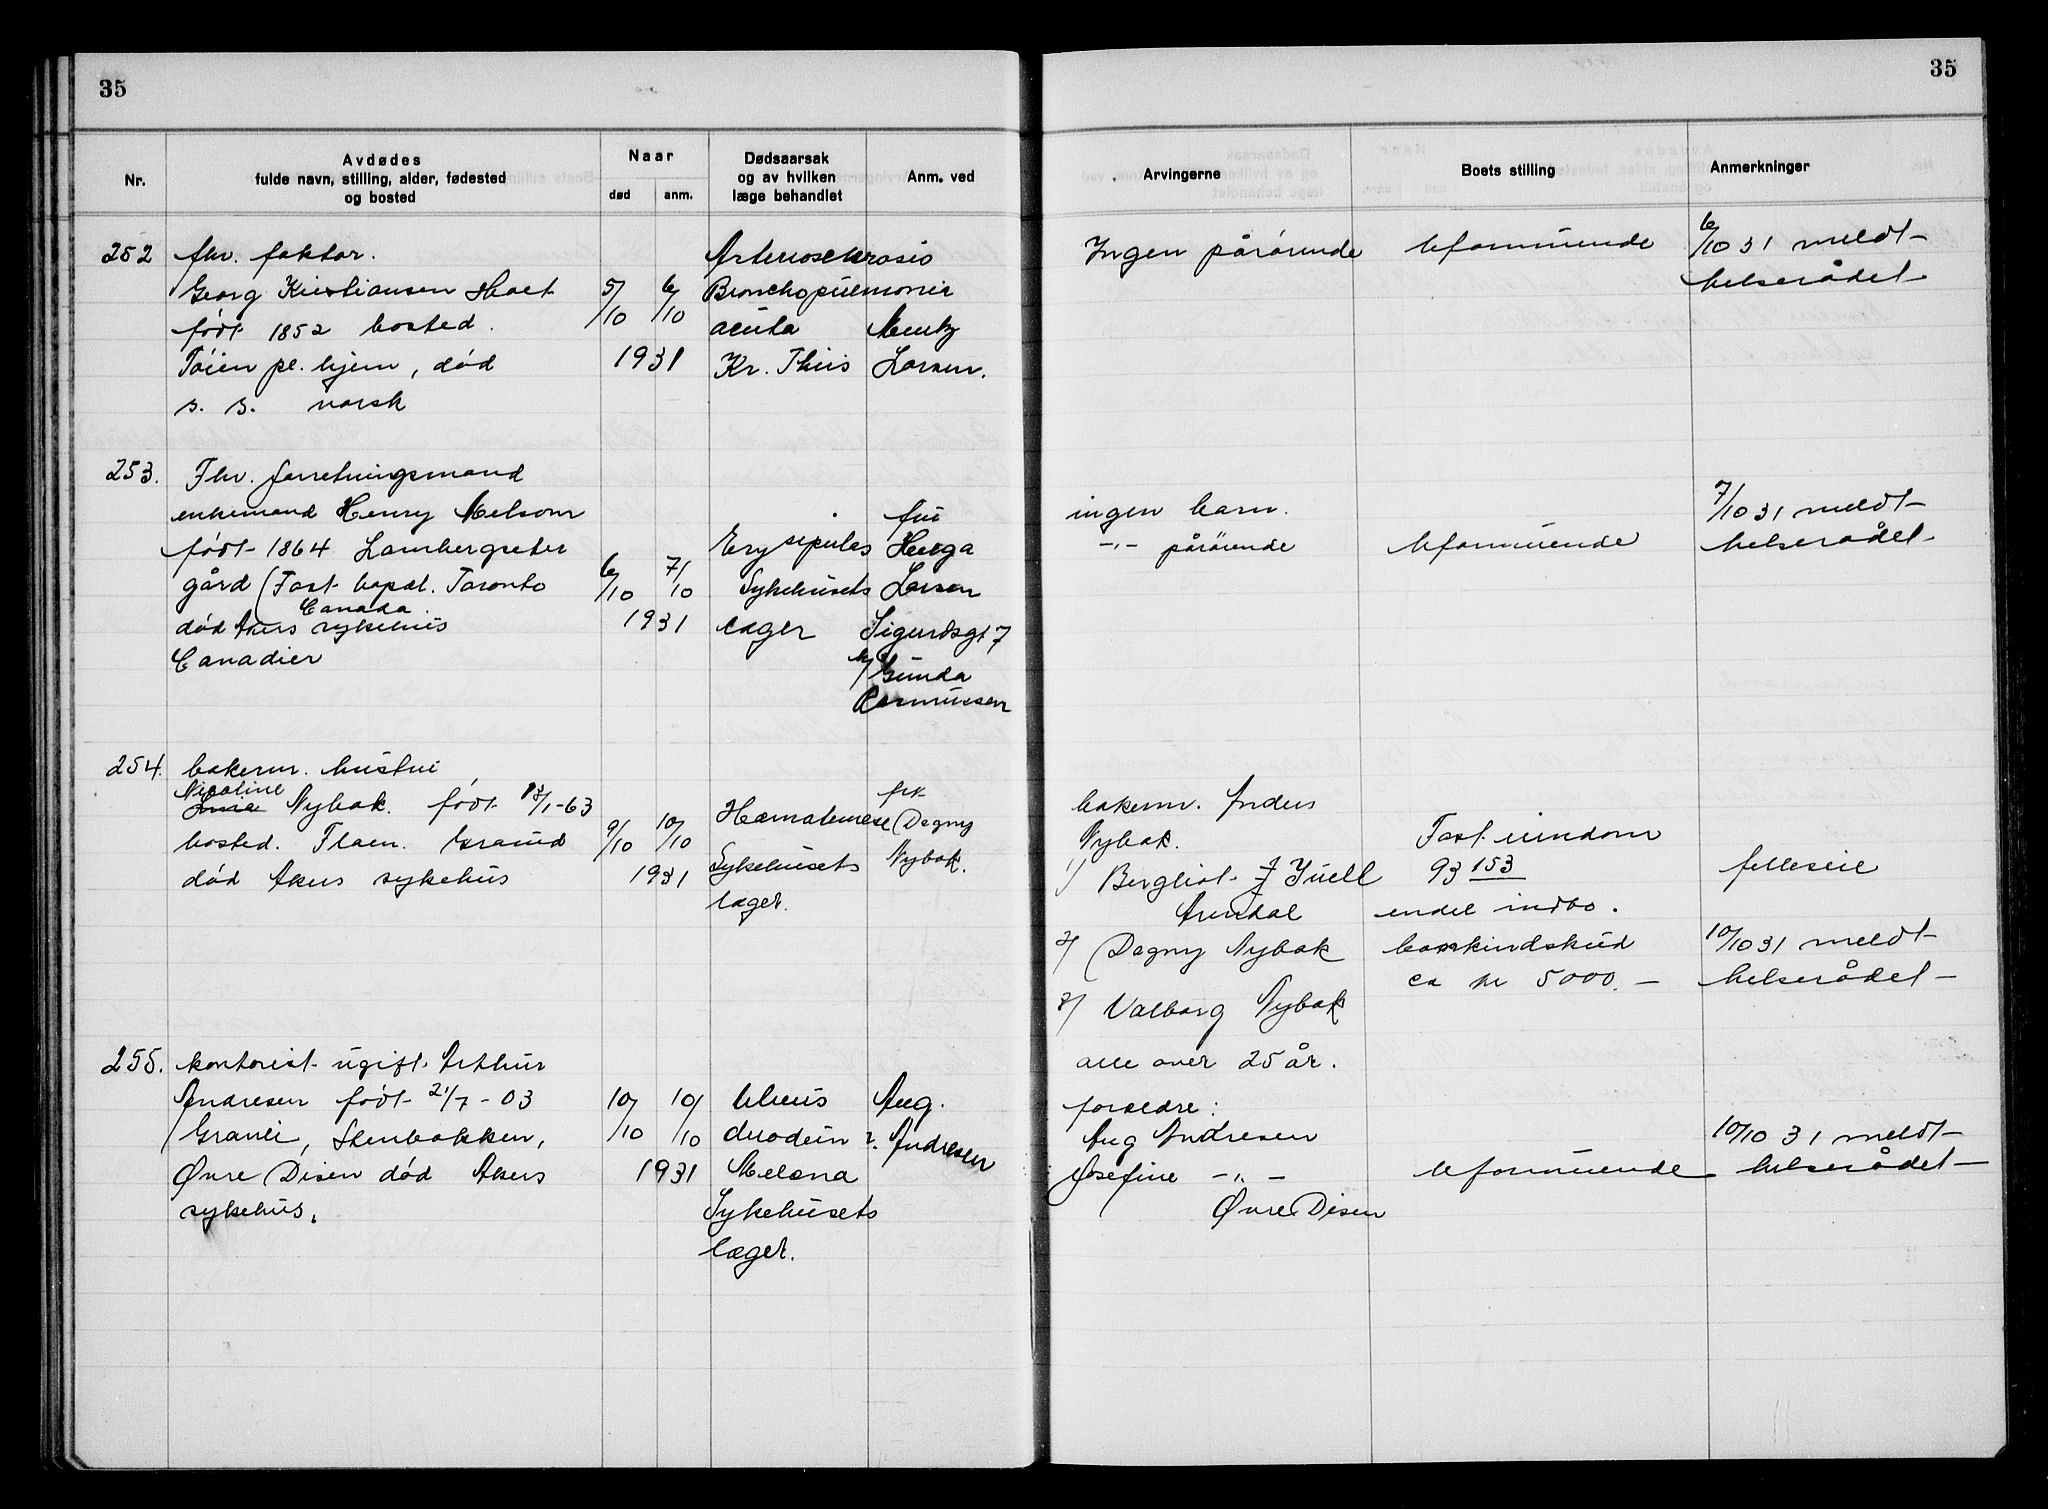 35
35
Nr.
Avdødes
fulde navn, stilling, alder, fødested
og bosted
Naar
død
anm.
Dødsaarsak
og av hvilken
læge behandlet
Anm. ved
Arvingerne
Boets stilling
Anmerkninger
252
fhv. faktor.
Georg Kristiansen
født 1852 bosted.
Tøien pl. hjem, død
s. s. norsk
5/10
6/10
1931
Arteriosclerosis
Bronchopneumonia
acuta
Kr. Thiis
Mentz
Larsen.
Ingen pårørende
Uformuende
6/10 31 meldt
helserådet
253.
Fhv. forretningsmand
enkemand Henry Melsom
født 1864 Lambergseter
gård (Fast bopæl. Toronto
Canada.
død Akers sykehus
Canadier
6/10
7/10
1931
Erysipelas
Sykehusets
læger
fru
Helga
Larsen
Sigurdsgt 7
v/ Gunda
Rasmussen
ingen barn.
-"- pårørende
Uformuende
7/10 31 meldt
helserådet
254.
bakerm. hustru
Nicoline
Nybak. født /1-63
bosted. Flaen. Grorud
død Akers sykehus
9/10
10/10
1931
Hæmatemese
Sykehusets
læger.
frk
Dagny
Nybak.
bakerm. Anders
Nybak.
1/ Bergliot J Juell
Arendal
2/ Dagny Nybak
3/ Valborg Nybak
alle over 25 år.
Fast eiendom
93 153
endel indbo.
bankindskud
ca kr 5000.–
felleseie
10/10 31 meldt
helserådet
255.
kontorist ugift Arthur
Andresen født 21/7 - 03
Grorud, Stenbakken,
Øvre Disen død Akers
sykehus.
10/10
10/10
1931
Ulcus
duodeni ?.
Melæna
Sykehusets
læger.
Aug.
Andresen
forældre:
Aug Andresen
Josefine -"-
Øvre Disen
Uformuende
10/10 31 meldt
helserådet